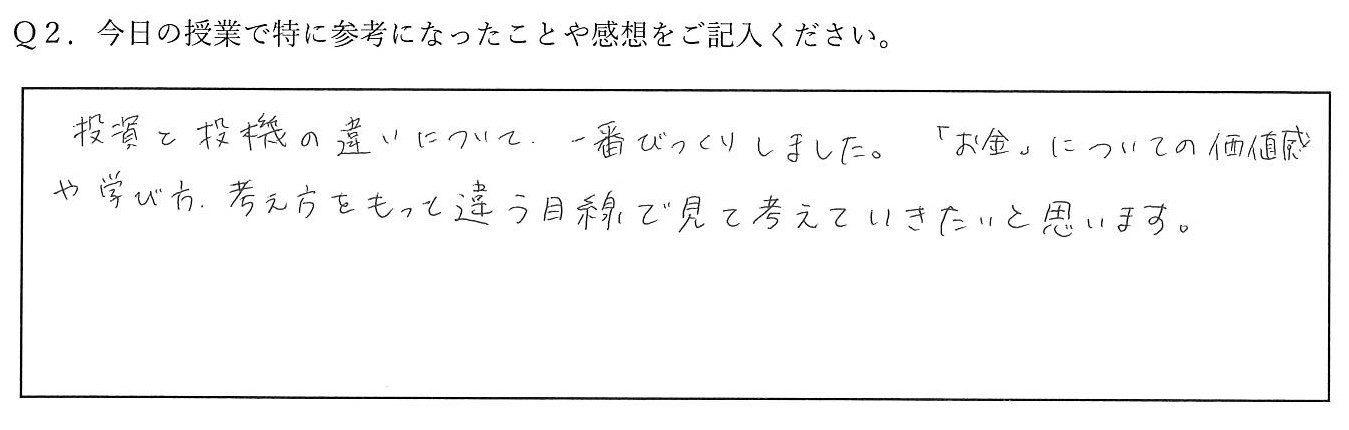 Q2．今日の授業で特に参考になったことや感想をご記入ください。
投資と投機の違いについて、一番びっくりしました。「お金」についての価値感
や学び方、考え方をもっと違う目線で見て考えていきたいと思います。